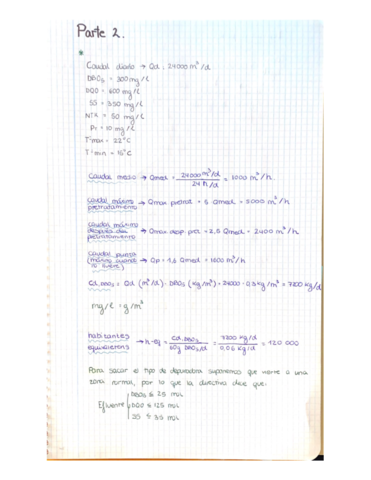 Parte 2.
*
Caudal diario → Qd = 24000 m³/d
DBO₅ = 300 mg/l
DQO = 600 mg/l
SS = 350 mg/l
NTK = 50 mg/l
Pt = 10 mg/l
Tªmax = 22°C
Tªmin = 16°C
Caudal medio → Qmed = 24000 m³/d / 24 h/d = 1000 m³/h
caudal máximo pretratamiento → Qmax pretrat = 5 Qmed = 5000 m³/h
caudal máximo después del pretratamiento → Qmax desp. pret = 2,4 Qmed = 2400 m³/h
caudal punta (máximo cuando no llueve) → Qp = 1,8 Qmed = 1800 m³/h
Cd. DBO₅ = Qd (m³/d) · DBO₅ (kg/m³) = 24000 · 0,3 kg/m³ = 7200 kg/d
mg/l = g/m³
habitantes equivalentes → h-eq = Cd. DBO₅ / 60g DBO₅/d = 7200 kg/d / 0,06 kg/d = 120 000
Para sacar el tipo de depuradora suponemos que vierte a una
zona normal, por lo que la directiva dice que:
Efluente DBO₅ ≤ 25 mg/l
DQO ≤ 125 mg/l
SS ≤ 35 mg/l